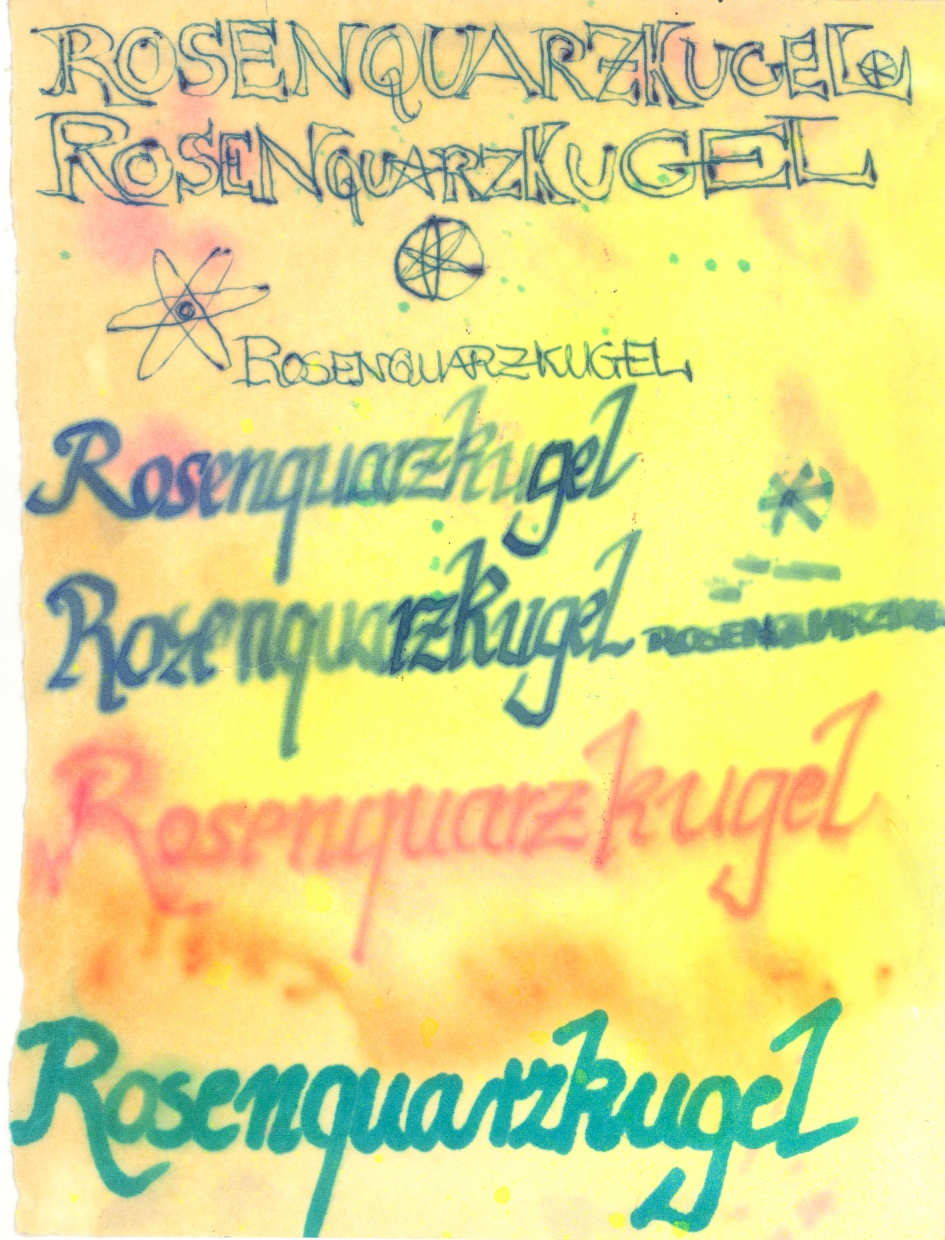 ROSENQUARZKUGEL
ROSENQUARZKUGEL
ROSENQUARZKUGEL
Rosenquarzkugel
Rosenquarzkugel
ROSENQUARZKU
Rosenquarzkugel
Rosenquarzkugel